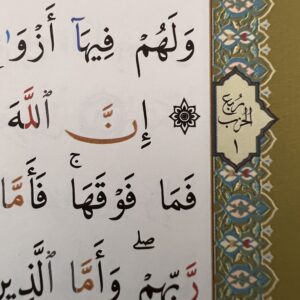 وَلَهُمْ فِيهَآ
۞ إِنَّ ٱللَّهَ
فَمَا فَوْقَهَاۚ فَأَمَّا
رَّبِّهِمْۖ وَأَمَّا ٱلَّذِينَ
رُبع
الحزب
١